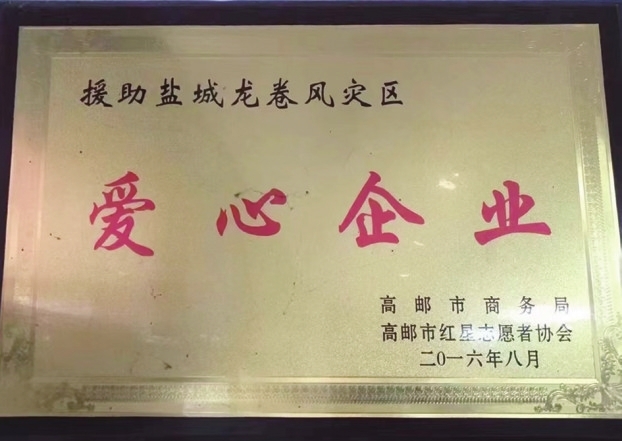 援助盐城龙卷风灾区
爱心企业
高邮市商务局
高邮市红星志愿者协会
二0一六年八月